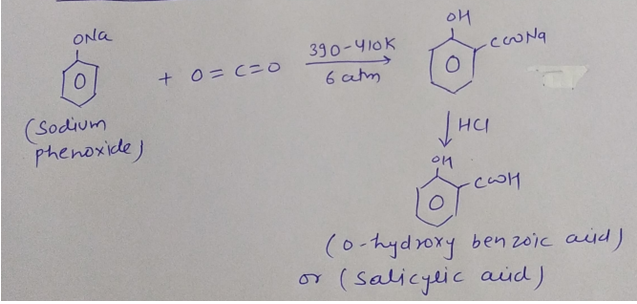 ONa
+ O=C=O
390-410K
6 atm
OH
COONa
(Sodium
phenoxide)
HCl
OH
COOH
(o-hydroxy benzoic acid)
or (salicylic acid)